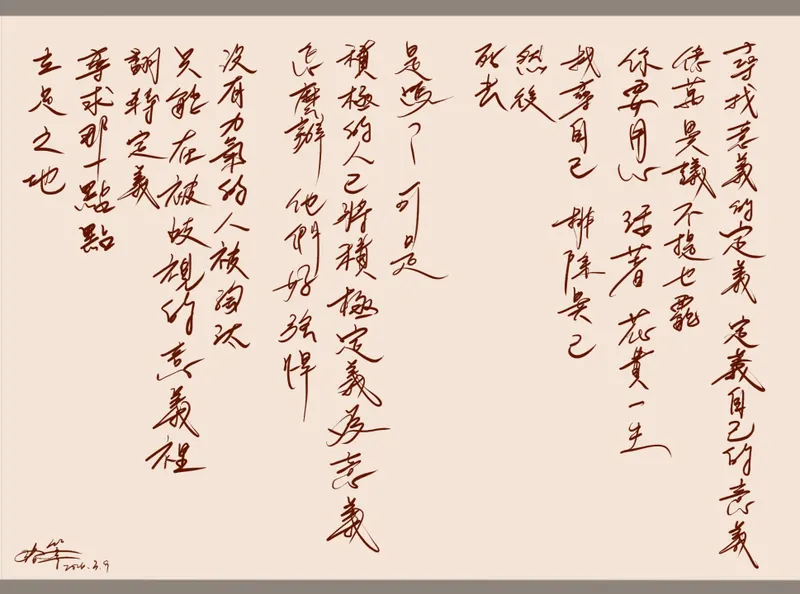 尋找意義的定義 定義自己的意義
億萬異議 不提也罷
你要用心 活著 花費一生
找尋自己 排除異己
然後
死去
是這了 可是
積極的人已將積極定義為意義
怎麼辦 他們好強悍
沒有力氣的人被淘汰
只能在被歧視的意義裡
翻轉定義
尋求那一點點
立足之地
2026.3.9